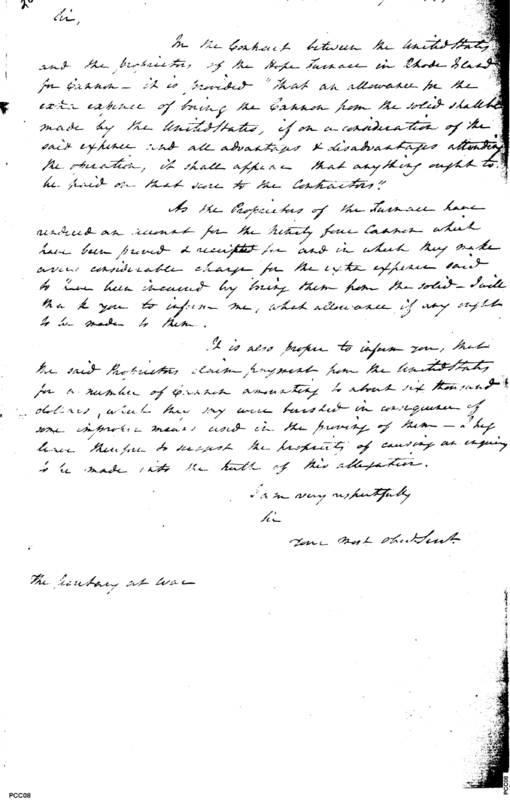 Sir,
In the Contract between the United States
and the proprietors of the Hope Furnace in Rhode Island
for Cannon – it is provided "that an allowance for the
extra expence of boring the Cannon from the solid shall be
made by the United States, if on a consideration of the
said expence and all advantages & disadvantages attending
the operation, it shall appear that anything ought to
be paid on that score to the Contractors."
As the Proprietors of the Furnace have
rendered an account for the Ninety four Cannon which
have been proved & receipted for and in which they make
a very considerable charge for the extra expence said
to have been incurred by boring them from the solid I will
thank you to inform me, what allowance if any ought
to be made to them.
It is also proper to inform you, that
the said Proprietors claim payment from the United States
for a number of Cannon amounting to about six thousand
dollars, which they say were bursted in consequence of
some improper means used in the proving of them – I beg
leave therefore to suggest the propriety of causing an inquiry
to be made into the truth of this allegation.
I am very respectfully
Sir
Your Most Obed Servt.
The Secretary at War
PCC08
PCC08